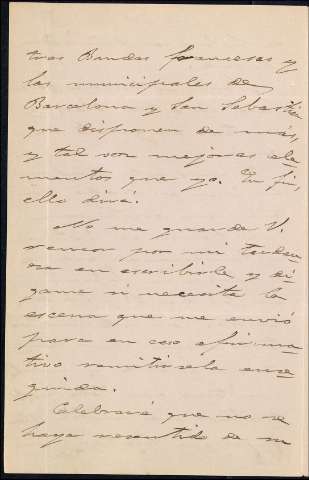 tras Bandas francesas y
las municipales de
Barcelona y San Sebastián
que disponen de más,
y tal son mejores ele-
mentos que yo. En fin,
ello dirá.
No me guarde V.
rencor por mi tardan-
za en escribirle y dí-
game si necesita la
escena que me envió
para en caso afirma-
tivo remitírsela ense-
guida.
Celebraré que no se
haya resentido de su